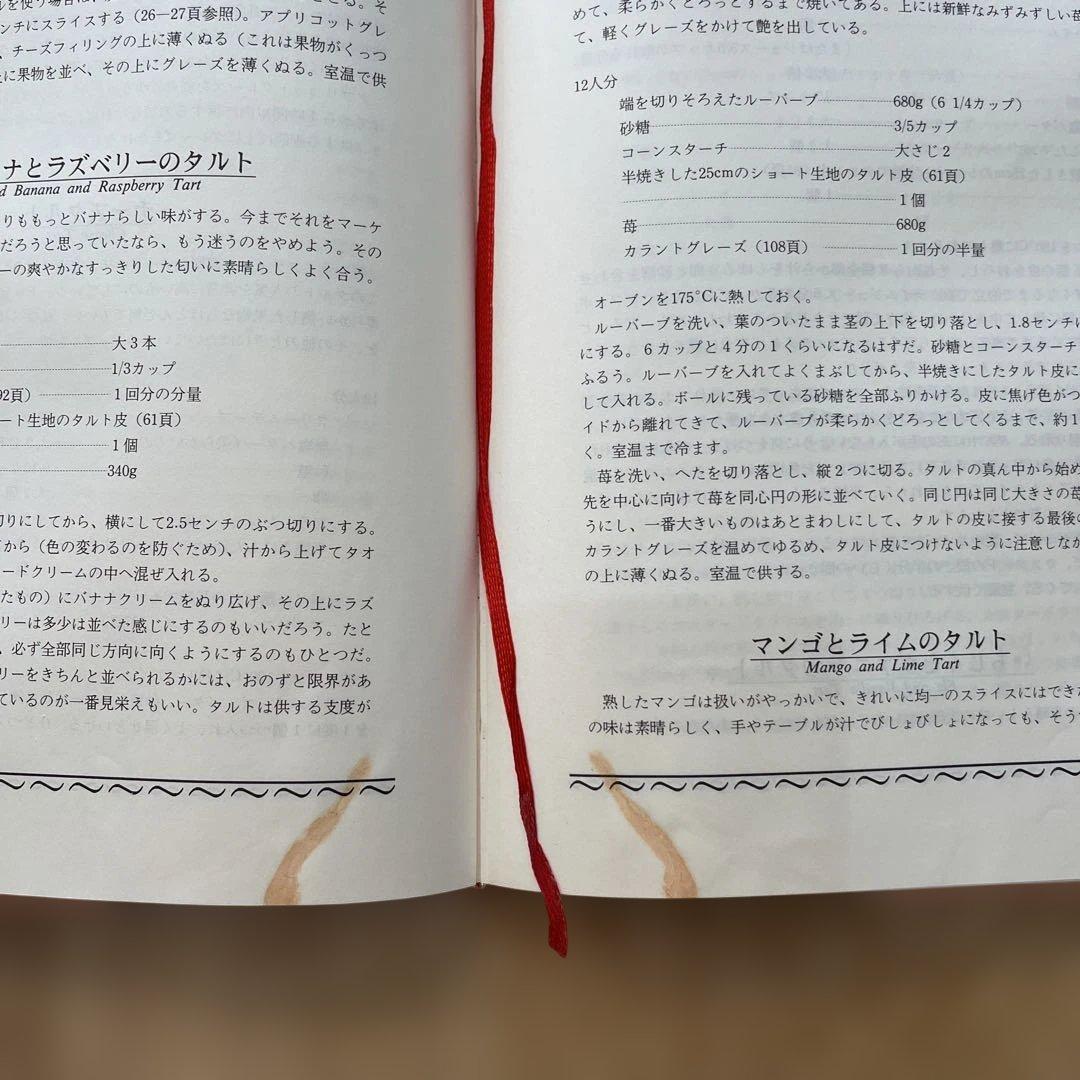 ンチにスライスする（26—27頁参照）。アプリコットグレ
、チーズフィリングの上に薄くぬる（これは果物がくっつ
に果物を並べ、その上にグレーズを薄くぬる。室温で供
ナとラズベリーのタルト
d Banana and Raspberry Tart
りももっとバナナらしい味がする。今までそれをマーケ
だろうと思っていたなら、もう迷うのをやめよう。その
ーの爽やかなすっきりした匂いに素晴らしくよく合う。
大3本
1/3カップ
92頁） 1回分の分量
ート生地のタルト皮（61頁）
1個
340g
切りにしてから、横にして2.5センチのぶつ切りにする。
てから（色の変わるのを防ぐため）、汁から上げてタオ
ードクリームの中へ混ぜ入れる。
たもの）にバナナクリームをぬり広げ、その上にラズ
リーは多少は並べた感じにするのもいいだろう。たと
、必ず全部同じ方向に向くようにするのもひとつだ。
リーをきちんと並べられるかには、おのずと限界があ
ているのが一番見栄えもいい。タルトは供する支度が
めて、柔らかくどろっとするまで焼いてある。上には新鮮なみずみずしい苺
て、軽くグレーズをかけて艶を出している。
12人分
端を切りそろえたルーバーブ 680g（6 1/4カップ）
砂糖 3/5カップ
コーンスターチ 大さじ2
半焼きした25cmのショート生地のタルト皮（61頁）
1個
苺 680g
カラントグレーズ（108頁） 1回分の半量
オーブンを175°Cに熱しておく。
ルーバーブを洗い、葉のついたまま茎の上下を切り落とし、1.8センチに
にする。6カップと4分の1くらいになるはずだ。砂糖とコーンスターチ
ふるう。ルーバーブを入れてよくまぶしてから、半焼きにしたタルト皮に
して入れる。ボールに残っている砂糖を全部ふりかける。皮に焦げ色がつ
イドから離れてきて、ルーバーブが柔らかくどろっとしてくるまで、約1
く。室温まで冷ます。
苺を洗い、へたを切り落とし、縦2つに切る。タルトの真ん中から始め
先を中心に向けて苺を同心円の形に並べていく。同じ円は同じ大きさの苺
うにし、一番大きいものはあとまわしにして、タルトの皮に接する最後の
カラントグレーズを温めてゆるめ、タルト皮につけないように注意しなが
の上に薄くぬる。室温で供する。
マンゴとライムのタルト
Mango and Lime Tart
熟したマンゴは扱いがやっかいで、きれいに均一のスライスにはできな
の味は素晴らしく、手やテーブルが汁でびしょびしょになっても、そう